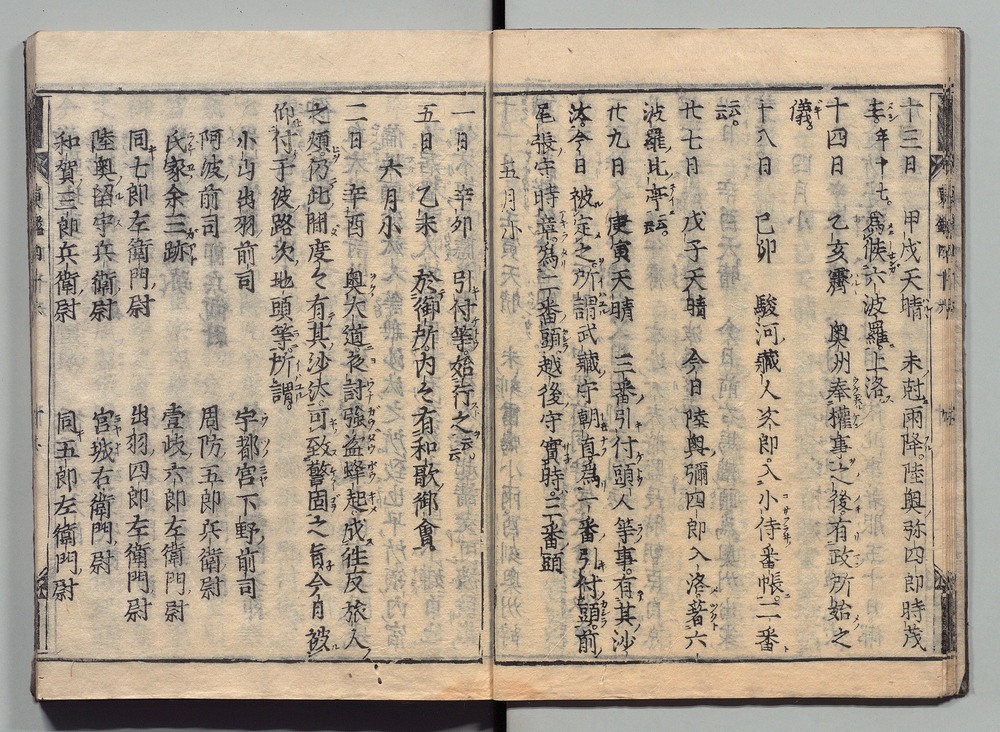 十三日 甲戌天晴 未剋雨降陸奥弥四郎時茂
生年十七。為候六波羅上洛
十四日 乙亥霽 奥州奉權事之後有政所始之
儀
十八日 己卯 駿河藏人次郎入小侍番帳二番
云云。
廿七日 戊子天晴 今日陸奥彌四郎入洛著六
波羅北亭云云
廿九日 庚寅天晴 三番引付頭人等事有其沙
汰今日被定之所謂武藏守朝直為一番引付頭前
尾張守時章為二番頭越後守實時三番頭
五月小
一日 辛卯 引付等始行之云云
五日 乙未 於御所内々有和歌御會
六月小
二日 辛酉 奥大道夜討強盗蜂起成往反旅人
之煩仍此間度々有其沙汰可致警固之旨今日被
仰付于彼路次地頭等所謂
小山出羽前司 宇都宮下野前司
阿波前司 周防五郎兵衛尉
氏家余三跡 壹岐六郎左衛門尉
同七郎左衛門尉 出羽四郎左衛門尉
陸奥留守兵衛尉 宮城右衛門尉
和賀三郎兵衛尉 同五郎左衛門尉